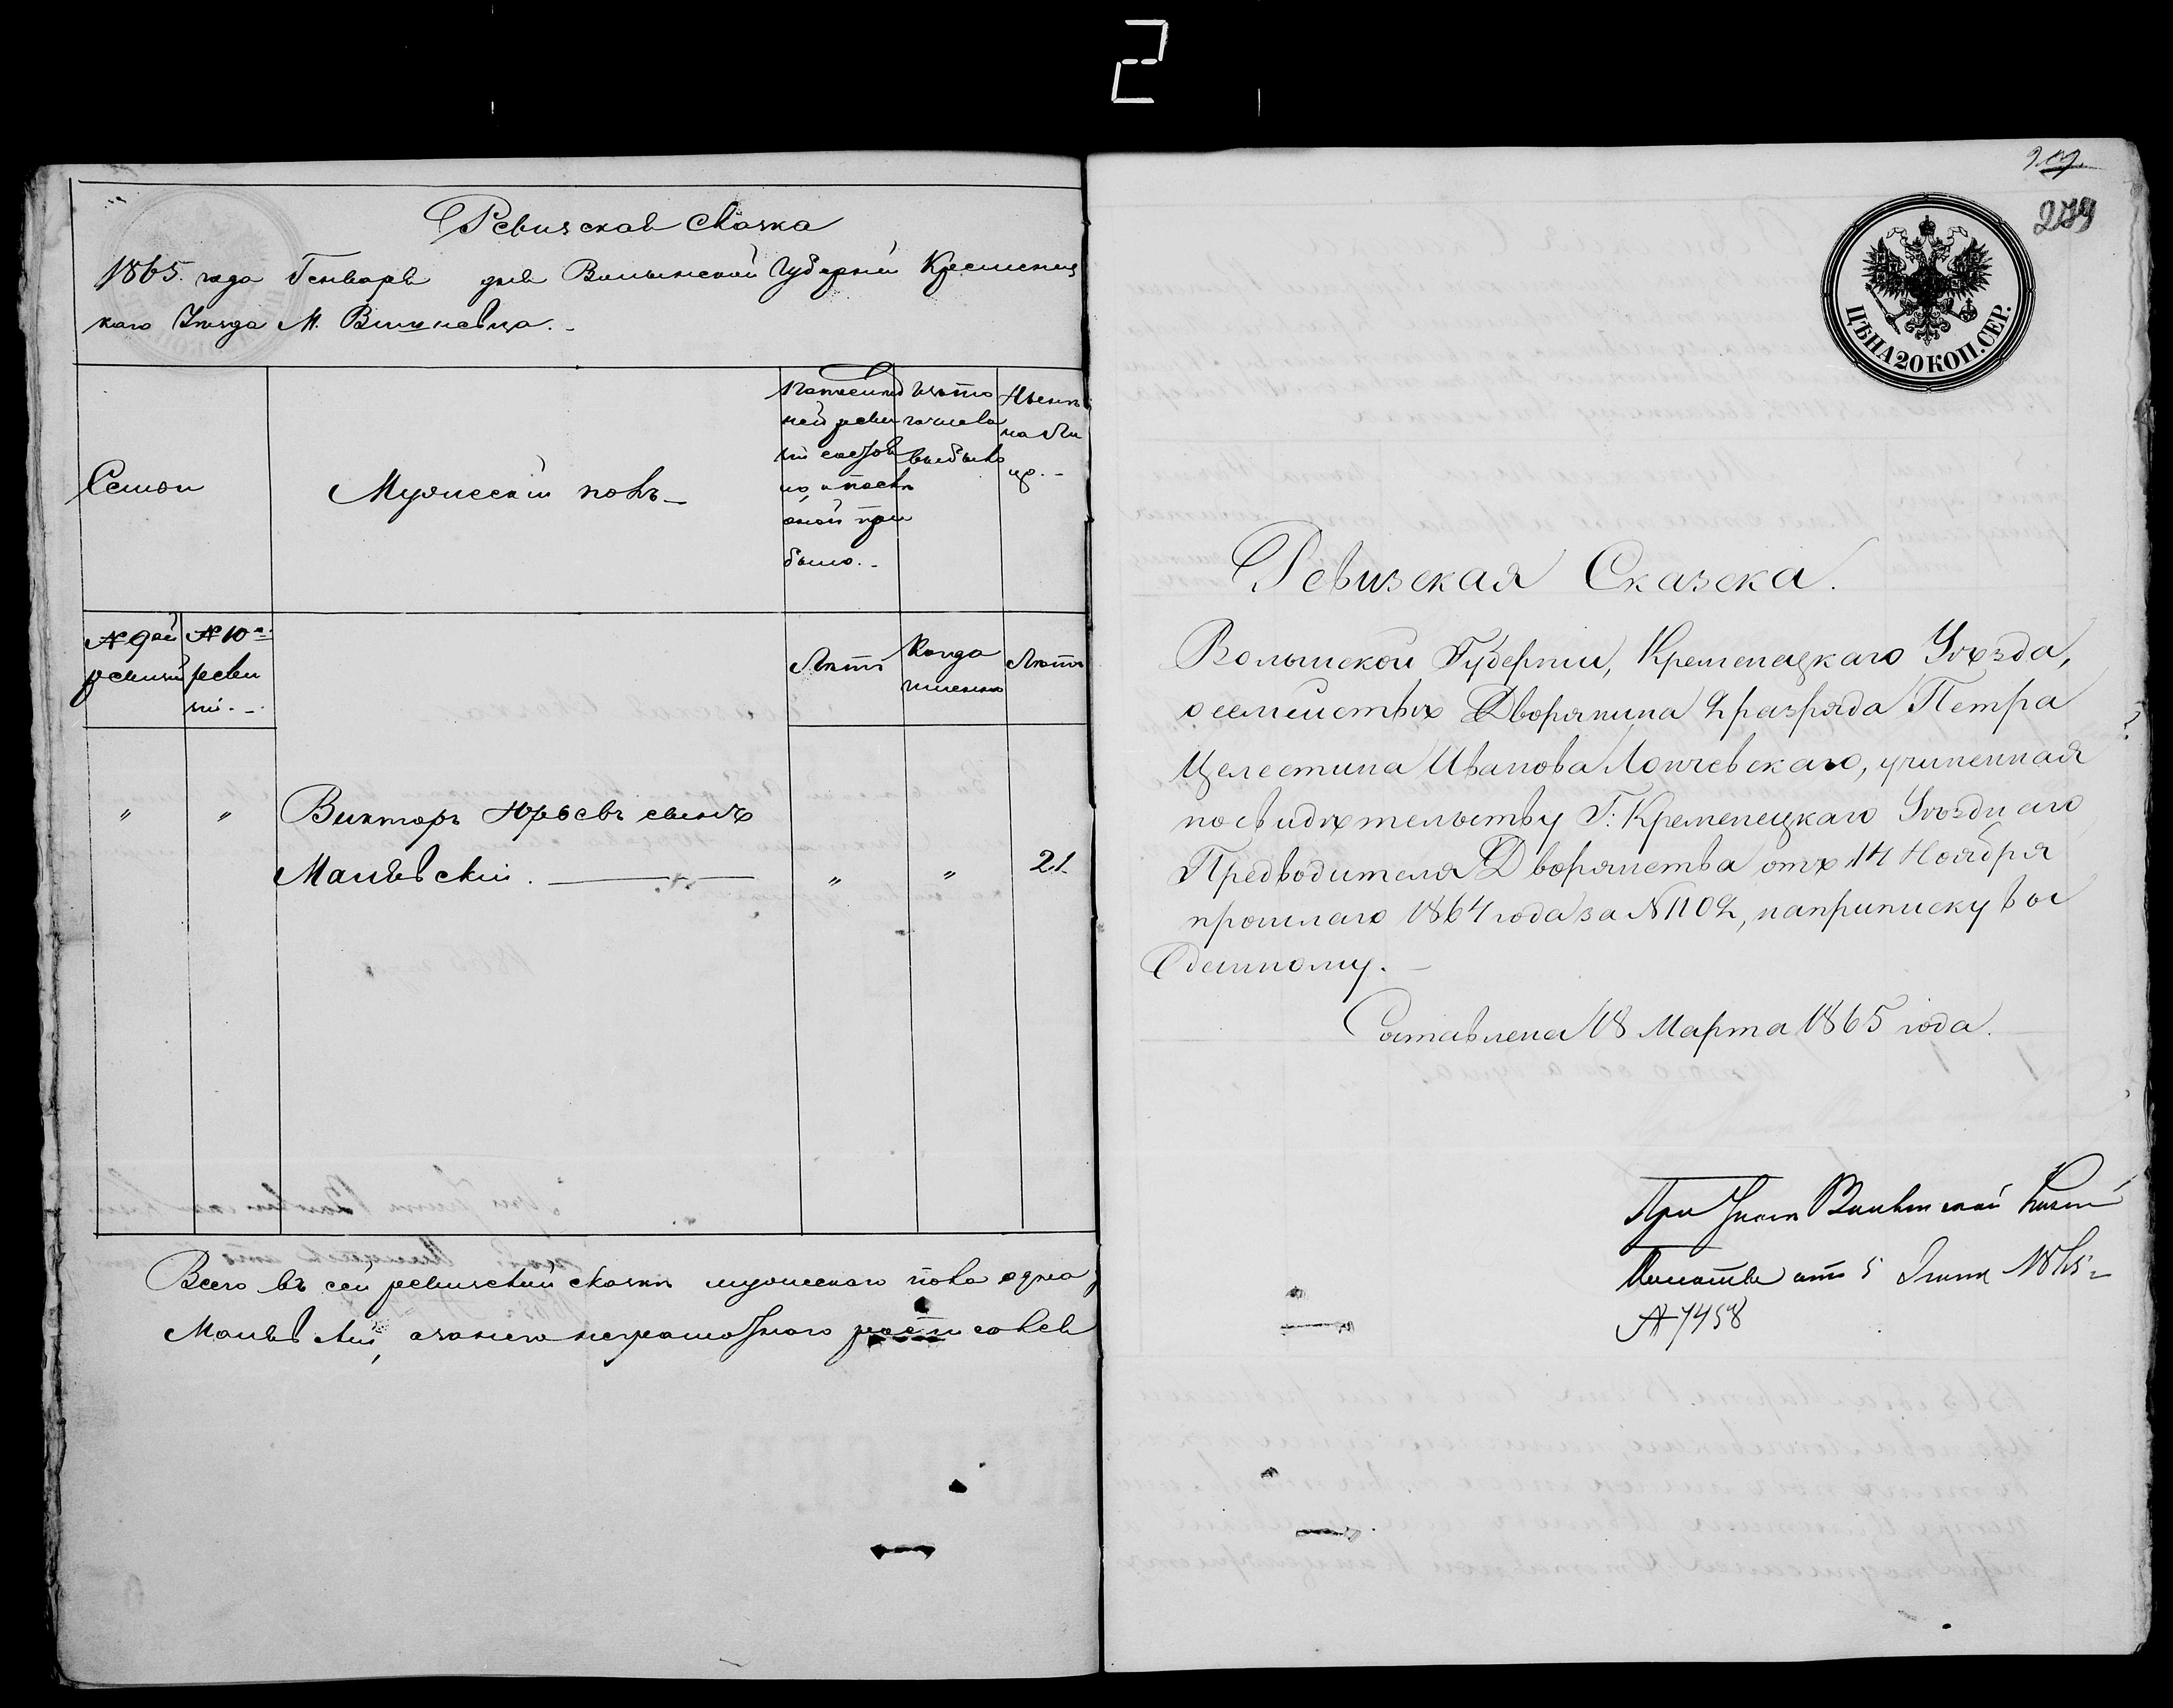 2
Ревизская сказка
1865 года Генваря дня Волынской Губерніи Кременец
каго Уѣзда М. Вишневца. -
Семьи
Мужескій полъ -
По послѣд
ней реви
зіи состоя
ло и послѣ
оной при
было. -
Изъ того
числа
выбыло
Нынѣ
на ли
цо. -
№ 9ой
ревизіи
№ 10й
реви
зіи. -
Лѣта
Когда
именно
Лѣта
" " Викторъ Юрьевъ сынъ
Маньѣвскій. " " 21
Всего въ сей ревизской сказкѣ мужескаго пола одна
а за него неграмотнаго росписався
279
ЦѢНА 20 КОП. СЕР.
Ревизская Сказка.
Волынской Губерніи, Кременецкаго Уѣзда,
о семействѣ Дворянина 2 разряда Петра
Целестина Иванова Лончевскаго, учиненная
по свидѣтельству Г: Кременецкаго Уѣзднаго
Предводителя Дворянства отъ 14 Ноября
прошлаго 1864 года за № 1102, на приписку во
Составлена 18 Марта 1865 года.
При Указѣ Волынской Казен
Палаты отъ 5 1865
№ 7458